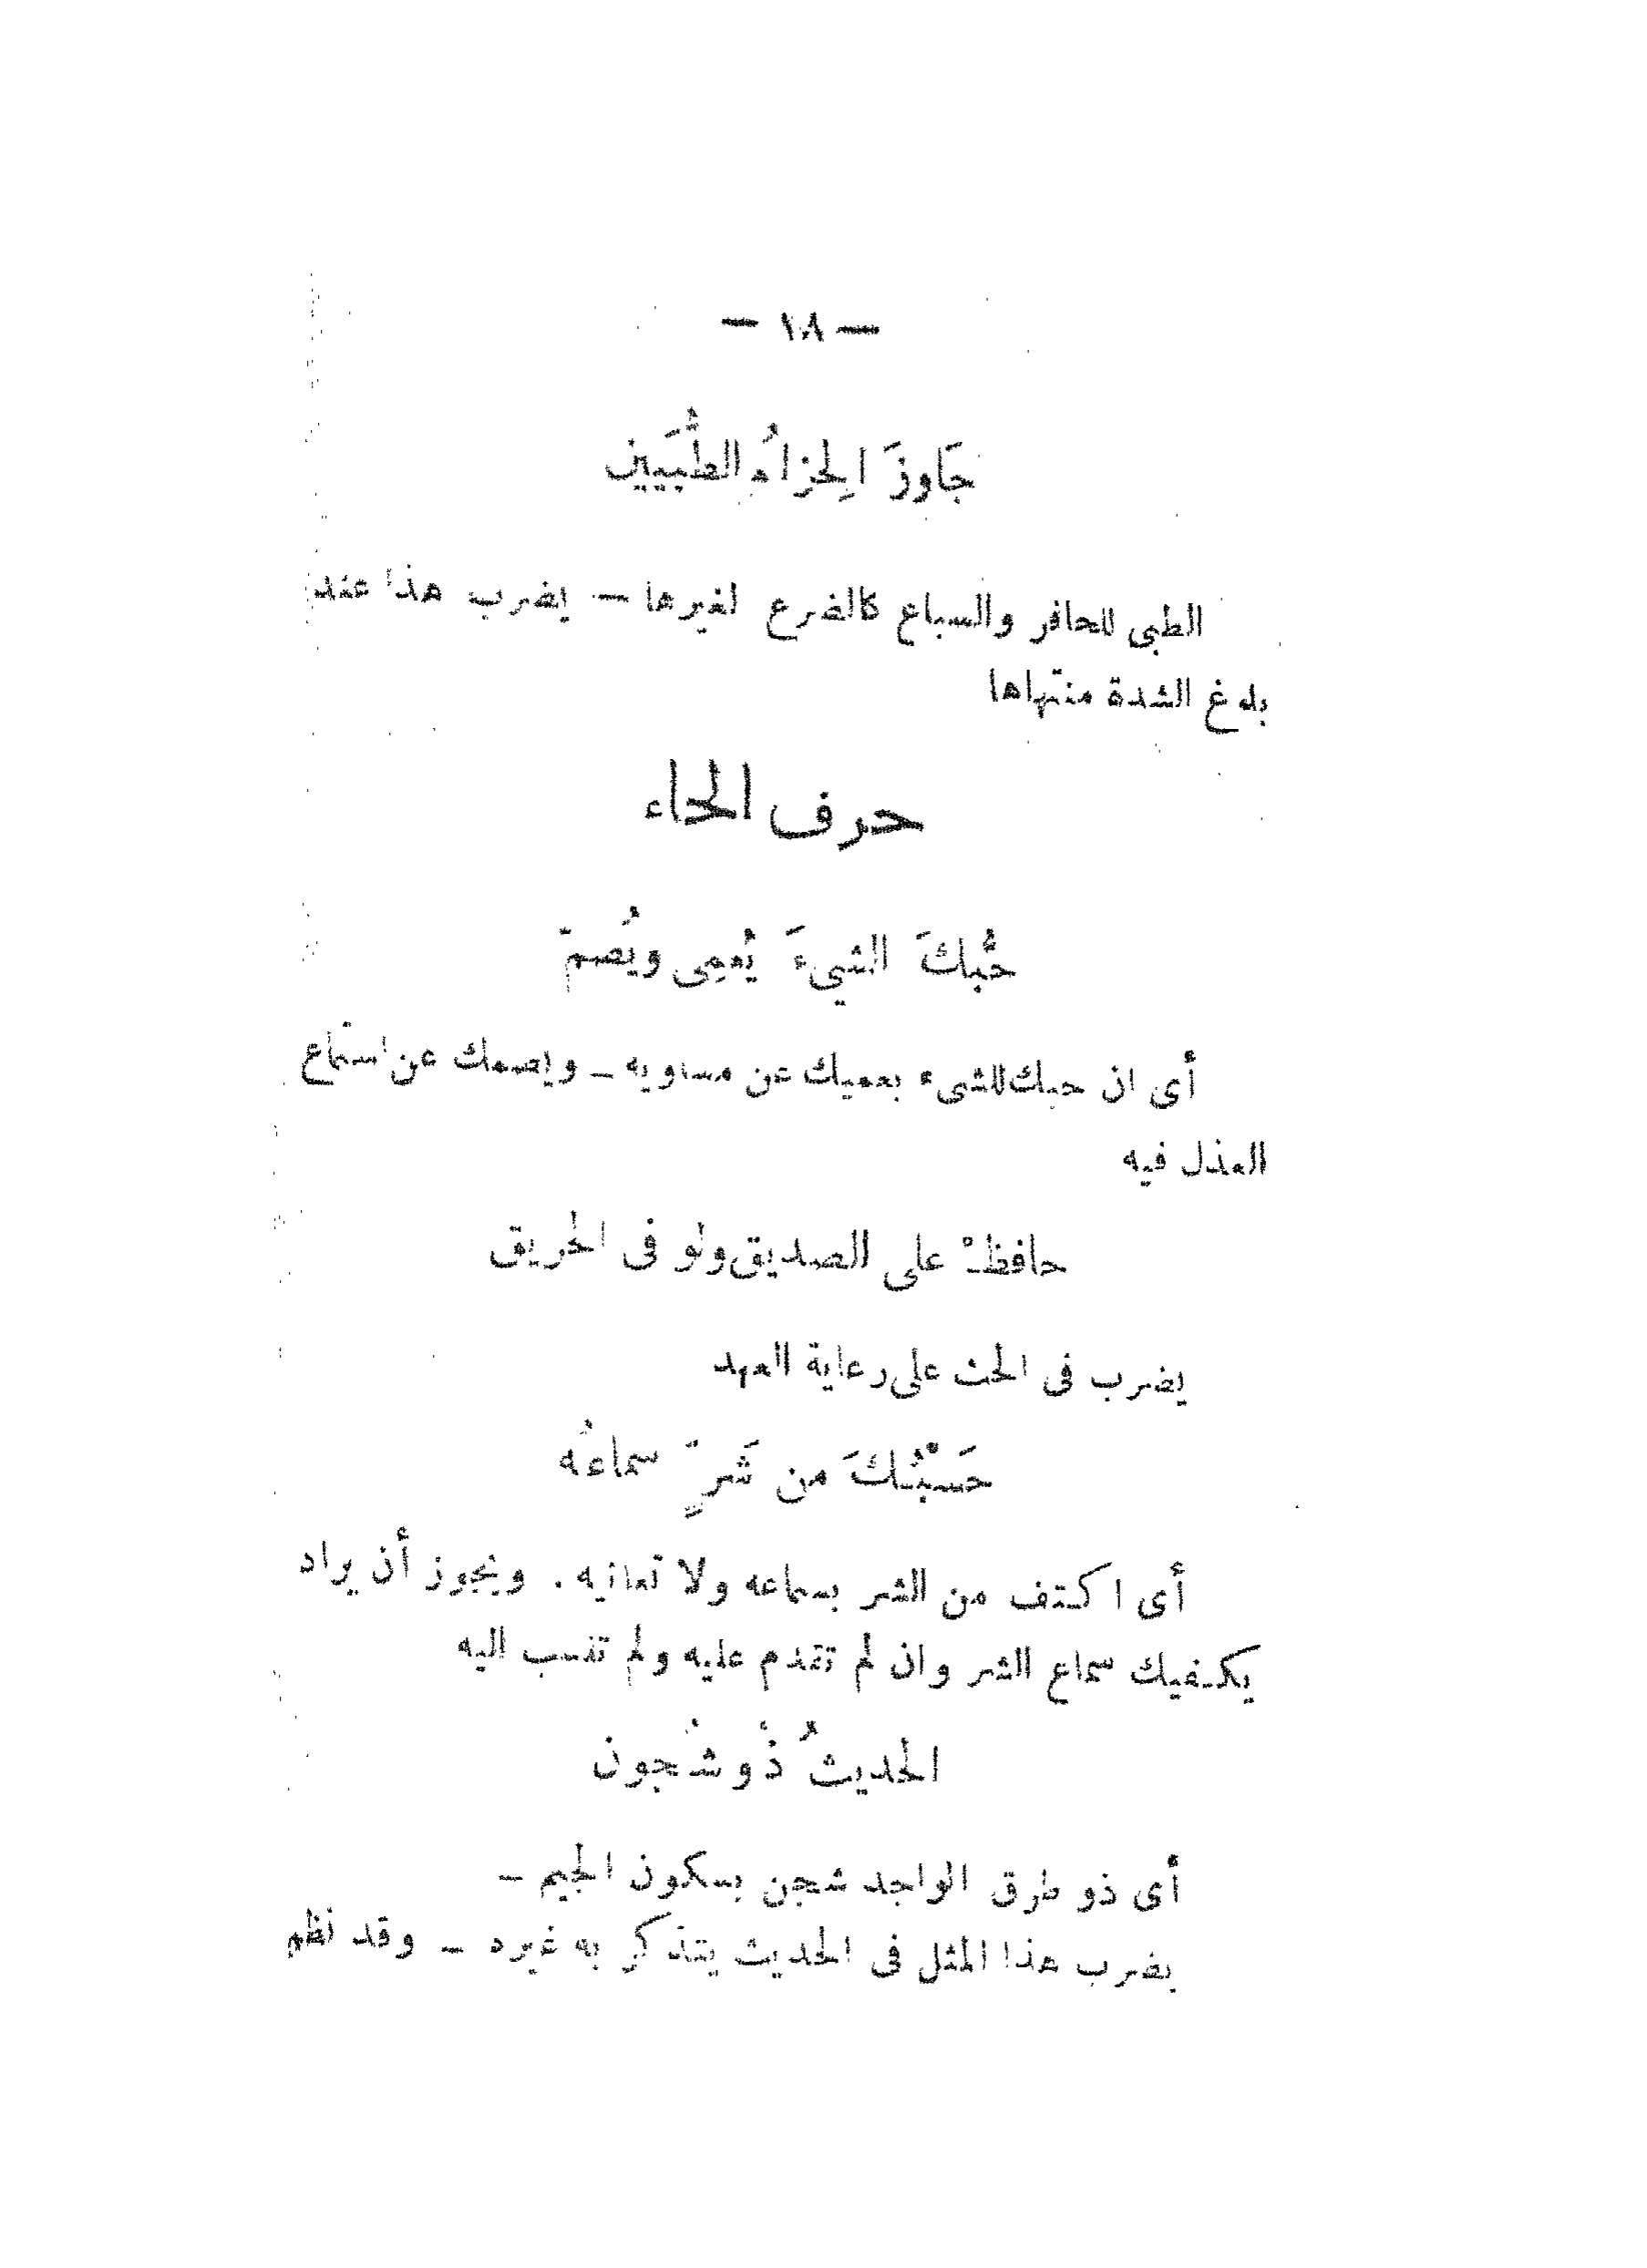 — ١٨ —
جَاوزَ الِحزامُ الطُّبَيين
الطبى للحافر والسباع كالضرع لغيرها — يضرب هذا عند
بلوغ الشدة منتهاها
حرف الحاء
حُبُّكَ الشيءَ يُعمِى ويُصمّ
أى ان حبك للشىء يعميك عن مساويه — ويصمك عن استماع
العذل فيه
حافظْ على الصديق ولو فى الحريق
يضرب فى الحث على رعاية العهد
حَسْبُكَ من شَرٍّ سماعُه
أى اكتف من الشر بسماعه ولا تعانيه . ويجوز أن يراد
يكفيك سماع الشر وان لم تقدم عليه ولم تنسب اليه
الحديثُ ذُو شُجون
أى ذو طرق الواحد شجن بسكون الجيم —
يضرب هذا المثل فى الحديث يتذكر به غيره — وقد نظم